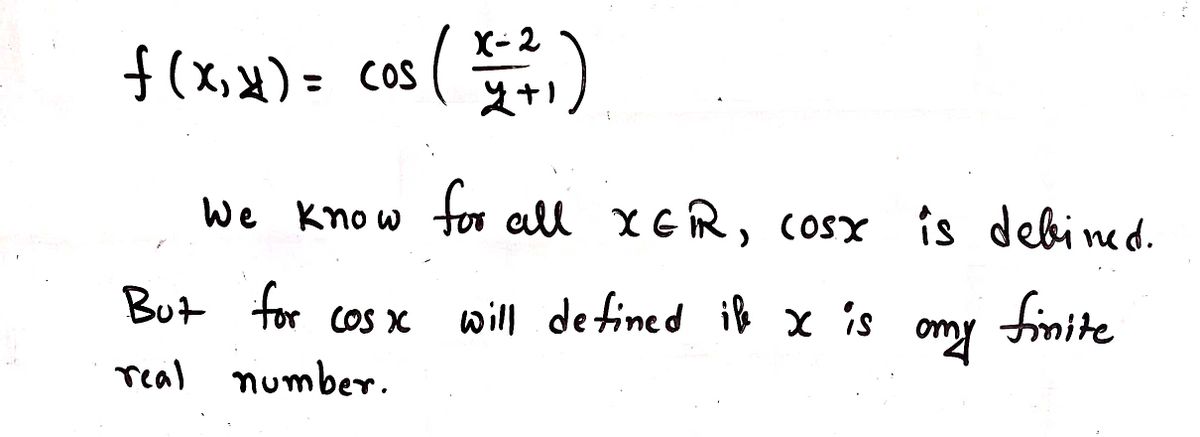 f(x,y) = cos(x-2/y+1)
We know for all x∈ℝ, cosx is defined.
But for cosx will defined if x is any finite
real number.